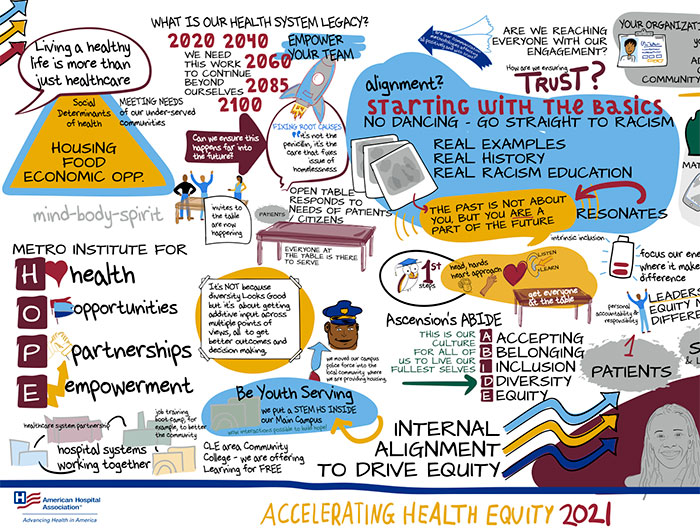 Living a healthy
life is more than
just healthcare
Social
Determinants
of health
HOUSING
FOOD
ECONOMIC OPP.
MEETING NEEDS
of our under-served
communities
mind-body-spirit
WHAT IS OUR HEALTH SYSTEM LEGACY?
2020 2040
WE NEED
THIS WORK
TO CONTINUE
BEYOND
OURSELVES
2060
2085
2100
EMPOWER
YOUR TEAM
Can we ensure this
happens far into
the future?
FIXING ROOT CAUSES
it's not the
penicillin, it's the
care that fixes
issue of
homelessness
invites to
the table
are now
happening
PATIENTS
OPEN TABLE
RESPONDS TO
NEEDS OF PATIENTS
/ CITIZENS
EVERYONE AT
THE TABLE IS THERE
TO SERVE
ARE WE REACHING
EVERYONE WITH OUR
ENGAGEMENT?
How are we ensuring
TRUST?
alignment?
STARTING WITH THE BASICS
NO DANCING - GO STRAIGHT TO RACISM
REAL EXAMPLES
REAL HISTORY
REAL RACISM EDUCATION
THE PAST IS NOT ABOUT
YOU, BUT YOU ARE A
PART OF THE FUTURE
RESONATES
YOUR ORGANIZAT
Y
AD
COMMUNITY
MAT
METRO INSTITUTE FOR
H health
O opportunities
P partnerships
E empowerment
It's NOT because
diversity Looks Good
but it's about getting
additive input across
multiple points of
views, all to get
better outcomes and
decision making.
we moved our campus
police force into the
local community where
we are providing housing.
1st
steps
head, hands
heart approach
LISTEN
LEARN
get everyone
at the table
intrinsic inclusion
focus our ene
where it make
difference
personal
accountability &
responsibility
LEADERS
EQUITY N
DIFFERE
Ascension's ABIDE
THIS IS OUR
CULTURE
FOR ALL OF
US TO LIVE OUR
FULLEST SELVES
A ACCEPTING
B BELONGING
I INCLUSION
D DIVERSITY
E EQUITY
1
PATIENTS
S
& L
Be Youth Serving
we put a STEM HS INSIDE
our Main Campus
new interactions possible to build hope!
healthcare system partnership
job training
boot camp, for
example, to better
the community
hospital systems
working together
CLE area Community
College - we are offering
Learning for FREE
INTERNAL
ALIGNMENT
TO DRIVE EQUITY
American Hospital
Association®
Advancing Health in America
ACCELERATING HEALTH EQUITY 2021